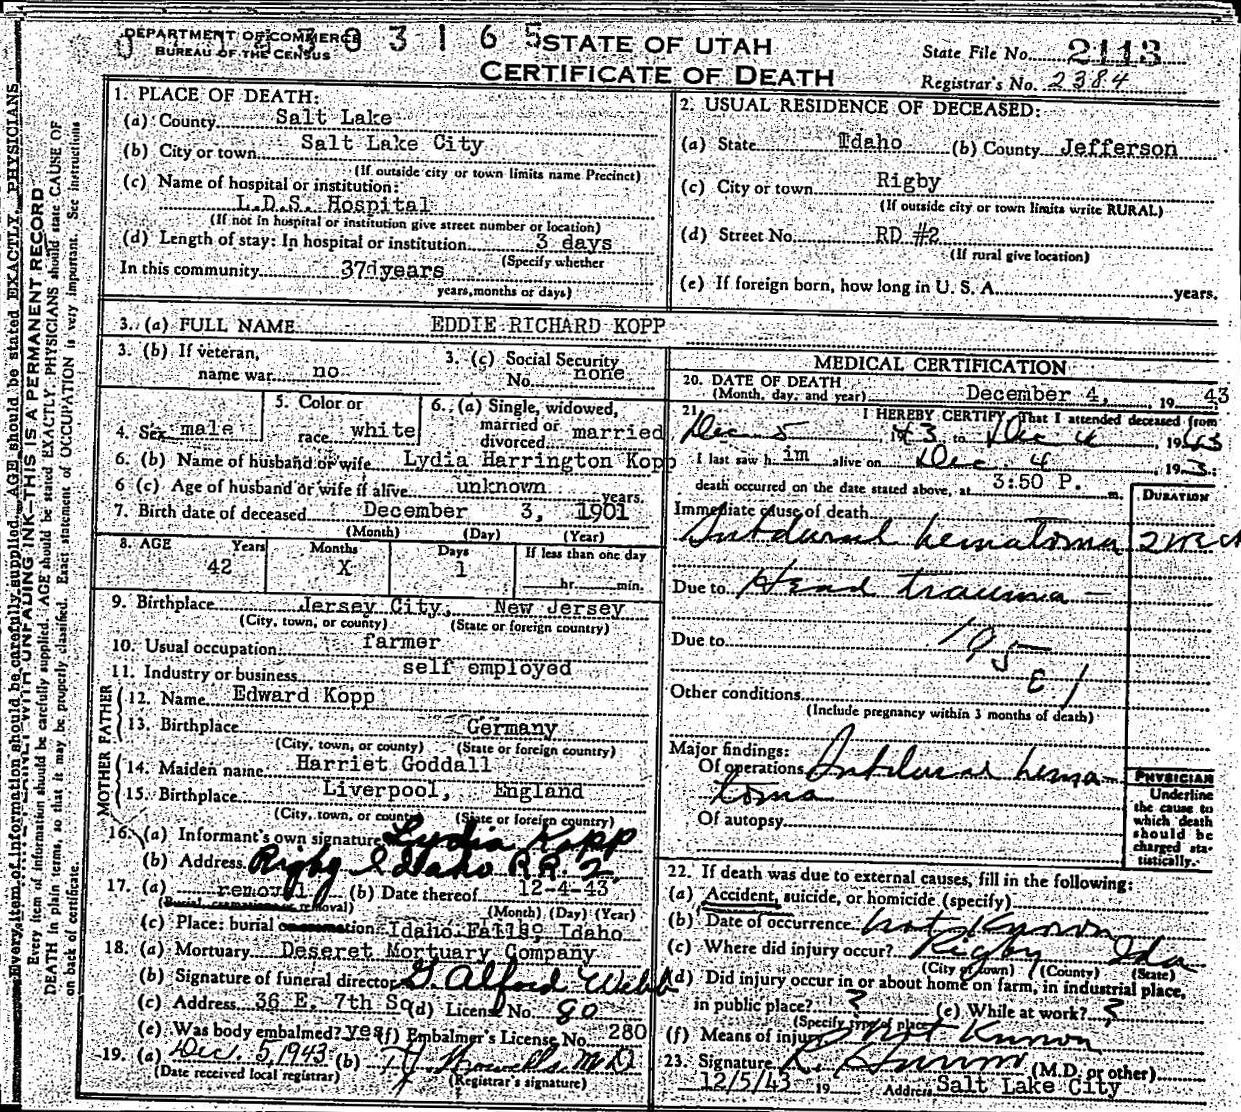 DEPARTMENT OF COMMERCE
BUREAU OF THE CENSUS
0 3 1 6 5
STATE OF UTAH
CERTIFICATE OF DEATH
State File No. 2113
Registrar's No. 2384
1. PLACE OF DEATH:
(a) County Salt Lake
(b) City or town Salt Lake City
(If outside city or town limits name Precinct)
(c) Name of hospital or institution:
L.D.S. Hospital
(If not in hospital or institution give street number or location)
(d) Length of stay: In hospital or institution 3 days
(Specify whether
In this community 37 years
years, months or days)
2. USUAL RESIDENCE OF DECEASED:
(a) State Idaho (b) County Jefferson
(c) City or town Rigby
(If outside city or town limits write RURAL)
(d) Street No. RD #2
(If rural give location)
(e) If foreign born, how long in U. S. A. years.
3. (a) FULL NAME EDDIE RICHARD KOPP
3. (b) If veteran,
name war no
3. (c) Social Security
No. none
4. Sex male
5. Color or
race white
6. (a) Single, widowed,
married or
divorced married
6. (b) Name of husband or wife Lydia Harrington Kopp
6 (c) Age of husband or wife if alive unknown years.
7. Birth date of deceased December 3, 1901
(Month) (Day) (Year)
8. AGE Years Months Days If less than one day
42 X 1 hr. min.
9. Birthplace Jersey City, New Jersey
(City, town, or county) (State or foreign country)
10. Usual occupation farmer
11. Industry or business self employed
FATHER
12. Name Edward Kopp
13. Birthplace Germany
(City, town, or county) (State or foreign country)
MOTHER
14. Maiden name Harriet Goddall
15. Birthplace Liverpool, England
(City, town, or county) (State or foreign country)
16. (a) Informant's own signature Lydia Kopp
(b) Address Rigby Idaho R.R. 2
17. (a) removal (b) Date thereof 12-4-43
(Burial, cremation or removal) (Month) (Day) (Year)
(c) Place: burial or cremation Idaho Falls, Idaho
18. (a) Mortuary Deseret Mortuary Company
(b) Signature of funeral director G. Alford Webb
(c) Address 36 E. 7th So (d) License No. 80
(e) Was body embalmed? yes (f) Embalmer's License No. 280
19. (a) Dec. 5, 1943 (b) M.D.
(Date received local registrar) (Registrar's signature)
MEDICAL CERTIFICATION
20. DATE OF DEATH
(Month, day, and year) December 4, 19 43
21. I HEREBY CERTIFY, That I attended deceased from
Dec 5 1943 to Dec 4 1943
I last saw h im alive on Dec. 4, 19 3.
death occurred on the date stated above, at 3:50 P. m.
DURATION
Immediate cause of death
Subdural hematoma 2 wch
Due to Head trauma -
Due to 195
E. 1
Other conditions
(Include pregnancy within 3 months of death)
Major findings:
Of operations Subdural hema-
toma
Of autopsy
PHYSICIAN
Underline
the cause to
which death
should be
charged sta-
tistically.
22. If death was due to external causes, fill in the following:
(a) Accident, suicide, or homicide (specify)
(b) Date of occurrence not Known
(c) Where did injury occur? Rigby Ida
(City or town) (County) (State)
(d) Did injury occur in or about home on farm, in industrial place,
in public place? ? (e) While at work? ?
(Specify type of place)
(f) Means of injury not Known
23. Signature (M.D. or other)
12/5/43 19 Address Salt Lake City
Every item of information should be carefully supplied. AGE should be stated EXACTLY. PHYSICIANS
WITH UNFADING INK—THIS IS A PERMANENT RECORD
Every item of information should be carefully supplied. AGE should be stated EXACTLY. PHYSICIANS should state CAUSE OF
DEATH in plain terms, so that it may be properly classified. Exact statement of OCCUPATION is very important. See instructions
on back of certificate.